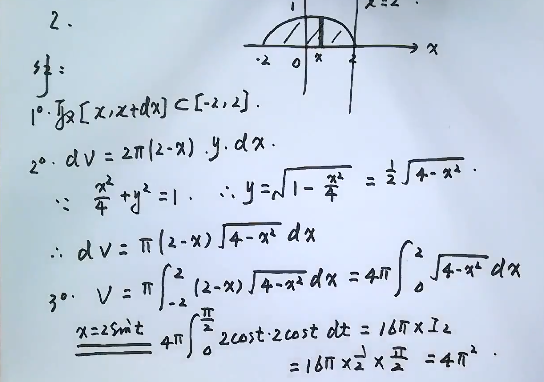 1
x=2
2.
-2 0 x 2 x
解:
1°. 取[x,x+dx]⊂[-2,2].
2°. dV=2π(2-x).y.dx.
∵ x²/4+y²=1. ∴ y=√(1-x²/4) = 1/2√(4-x²).
∴ dV=π(2-x)√(4-x²) dx
3°. V=π∫₋₂² (2-x)√(4-x²) dx = 4π∫₀² √(4-x²) dx
x=2sint 4π∫₀^(π/2) 2cost·2cost dt = 16π×I₂
=16π×1/2×π/2 =4π².